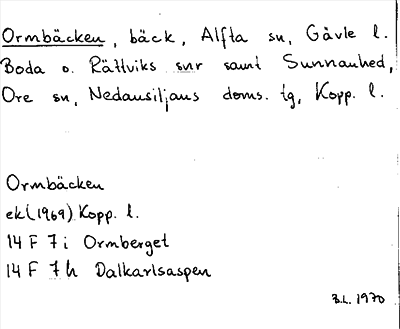 Ormbäcken, bäck, Alfta sn, Gävle l.
Boda o. Rättviks snr samt Sunnanhed,
Ore sn, Nedansiljans doms. tg, Kopp. l.
Ormbäcken
ek(1969) Kopp. l.
14 F 7 i Ormberget
14 F 7 h Dalkarlsaspen
B.L. 1970